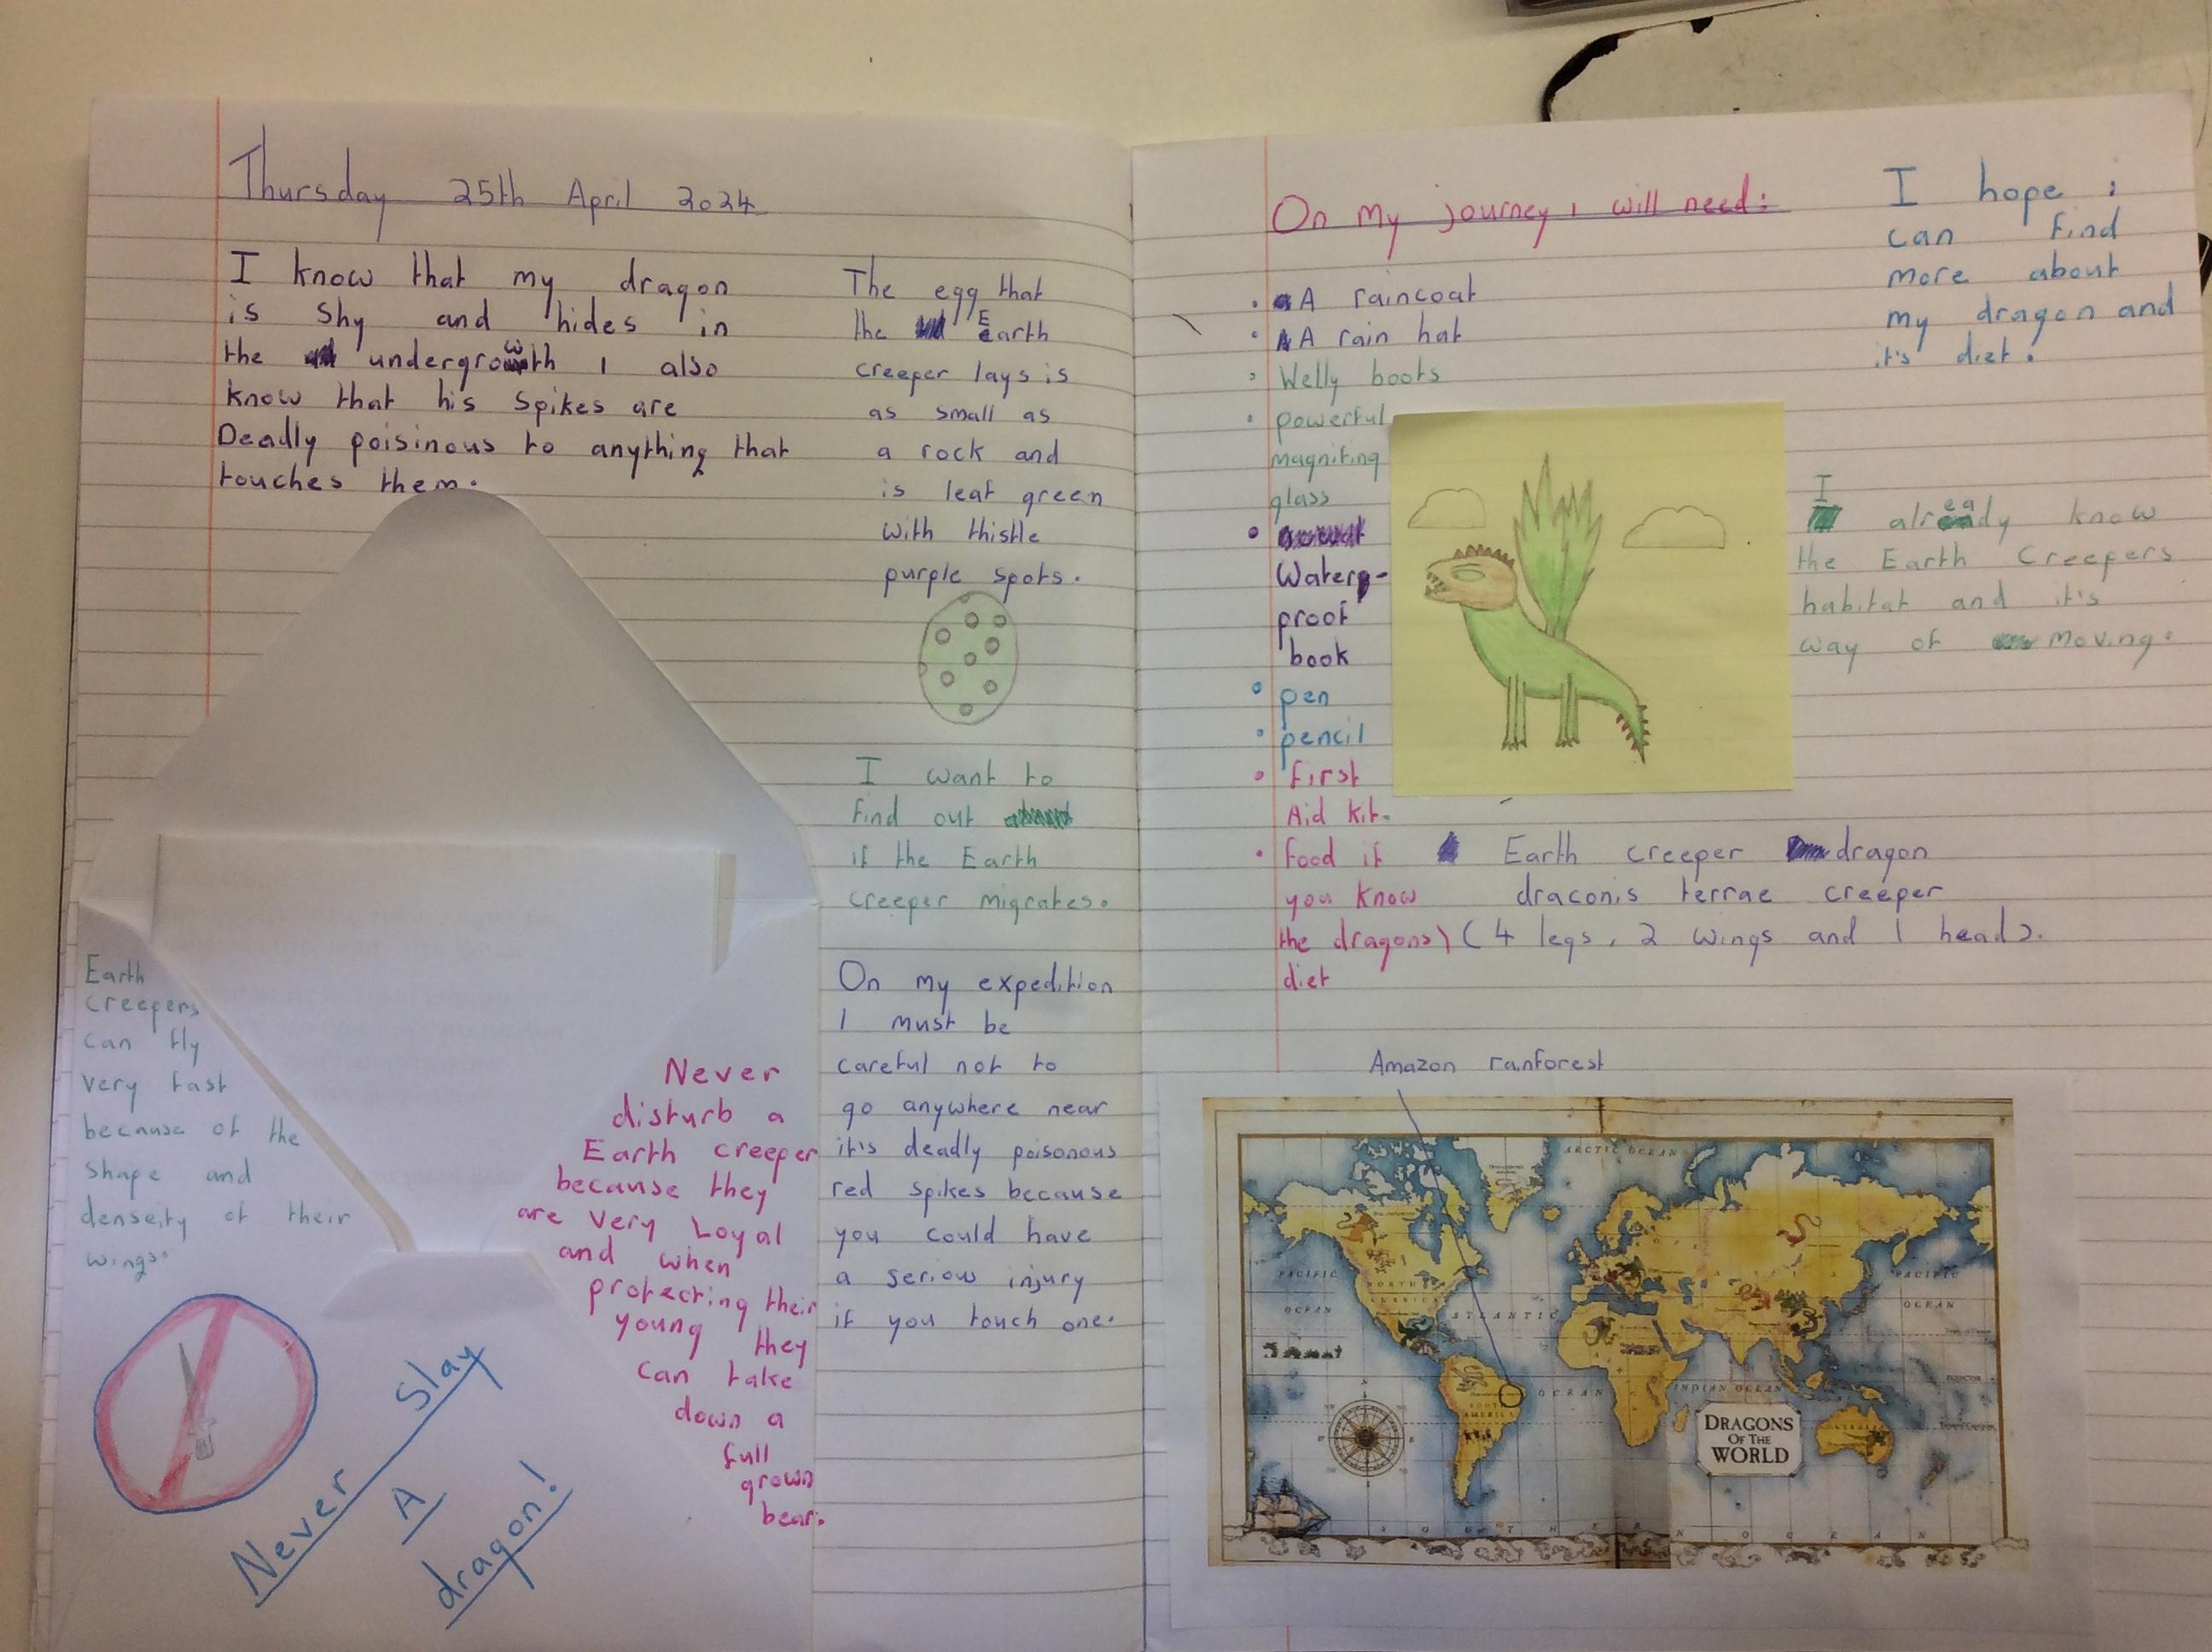 Thursday 25th April 2024
I know that my dragon
is shy and hides in
the undergrowth I also
know that his spikes are
Deadly poisinous to anything that
touches them.
The egg that
the Earth
creeper lays is
as small as
a rock and
is leaf green
with thistle
purple spots.
I want to
find out
if the Earth
creeper migrates.
On my expedition
I must be
careful not to
go anywhere near
it's deadly poisonous
red spikes because
you could have
a seriow injury
if you touch one.
Earth
creepers
can fly
very fast
because of the
shape and
denseity of their
wings.
Never
disturb a
Earth creeper
because they
are very Loyal
and when
protecting their
young they
can take
down a
full
grown
bear.
Never Slay
A
dragon!
On my journey I will need:
• A raincoat
• A rain hat
• Welly boots
• powerful
magnifing
glass
• Waterp-
proof
book
• pen
• pencil
• first
Aid kit.
• food if
you know
the dragons)
diet
I hope i
can find
more about
my dragon and
it's diet.
I already know
the Earth Creepers
habitat and it's
way of moving.
Earth creeper dragon
draconis terrae creeper
(4 legs, 2 wings and 1 head).
Amazon ranforest
ARCTIC OCEAN
PACIFIC
OCEAN
NORTH
AMERICA
ATLANTIC
OCEAN
SOUTH
AMERICA
INDIAN OCEAN
PACIFIC
OCEAN
DRAGONS
OF THE
WORLD
SOUTHERN OCEAN